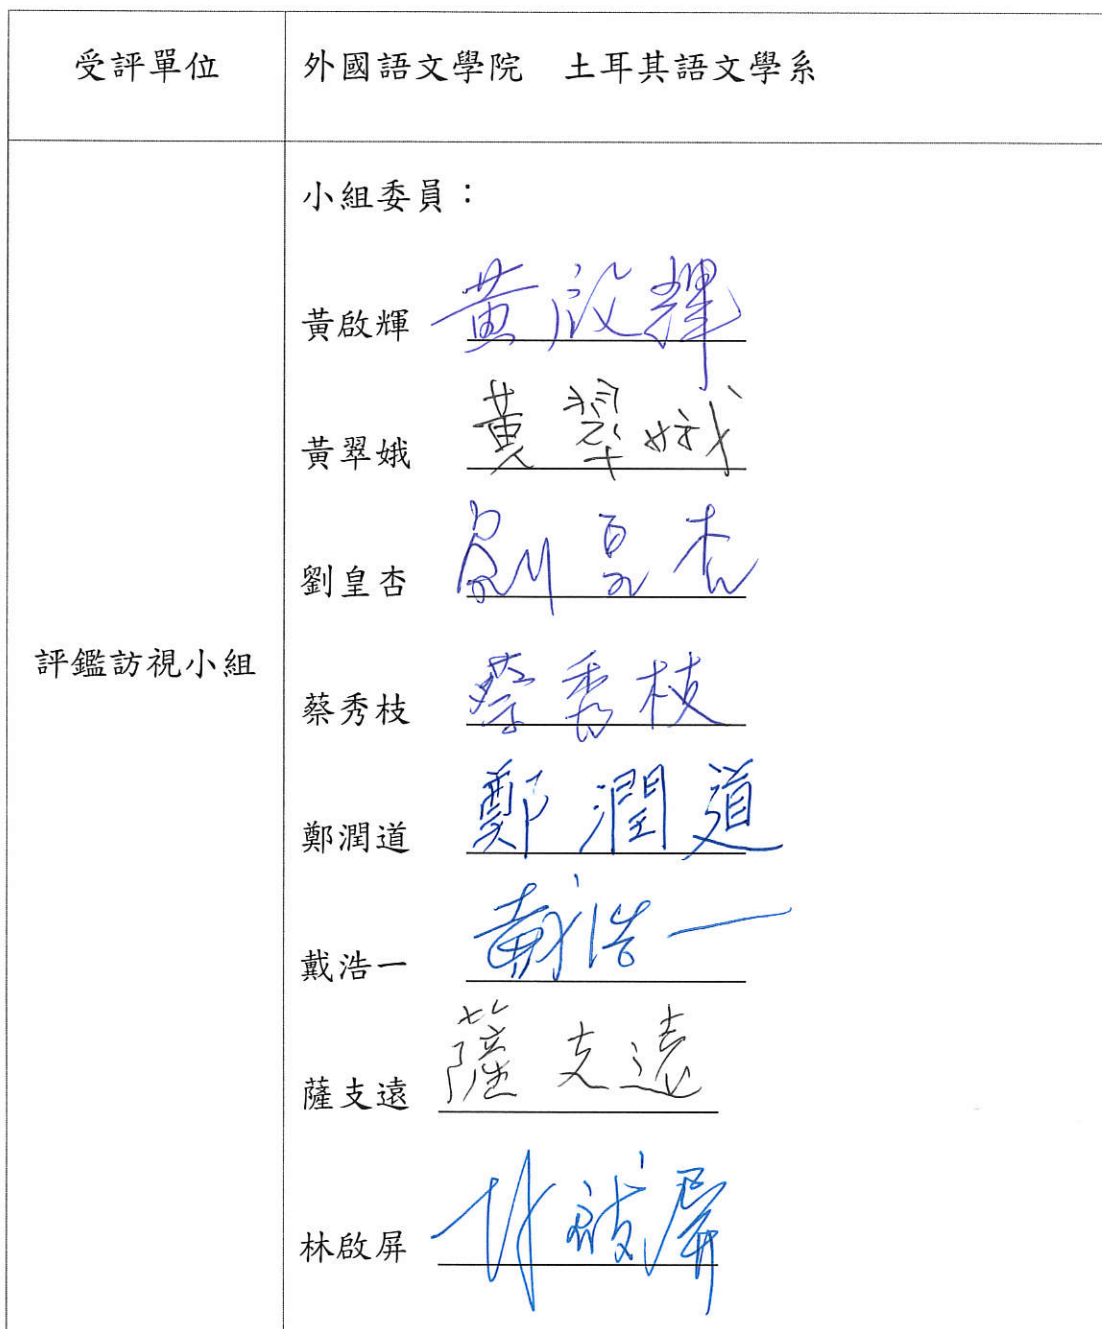 受評單位
外國語文學院 土耳其語文學系
評鑑訪視小組
小組委員：
黃啟輝 黃啟輝
黃翠娥 黃翠娥
劉皇杏 劉皇杏
蔡秀枝 蔡秀枝
鄭潤道 鄭潤道
戴浩一 戴浩一
薩支遠 薩支遠
林啟屏 林啟屏